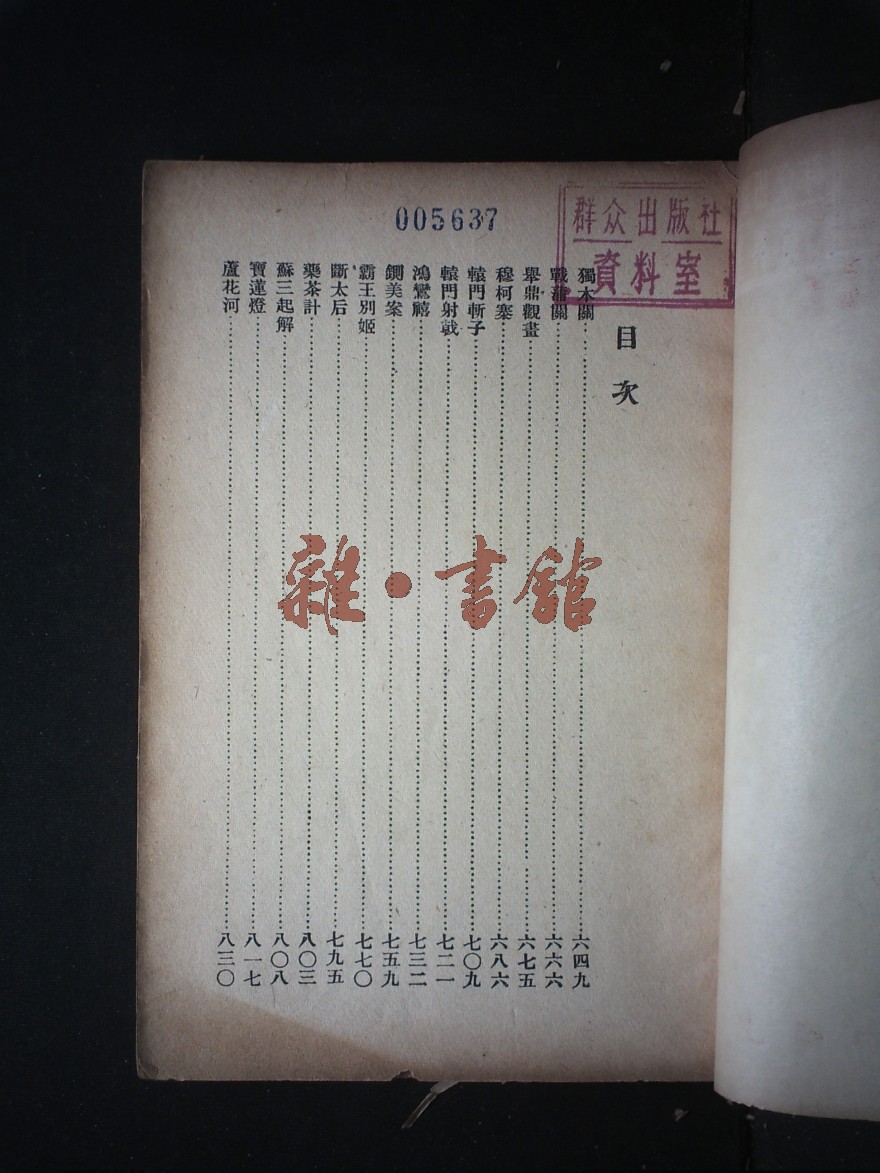 005637
群众出版社
資料室
目次
獨木關……六四九
戰蒲關……六六六
舉鼎觀畫……六七五
穆柯寨……六八六
轅門斬子……七〇九
轅門射戟……七二一
鴻鸞禧……七三二
鍘美案……七五九
霸王别姬……七七〇
斷太后……七九五
藥茶計……八〇三
蘇三起解……八〇八
寶蓮燈……八一七
蘆花河……八三〇
雜·書館